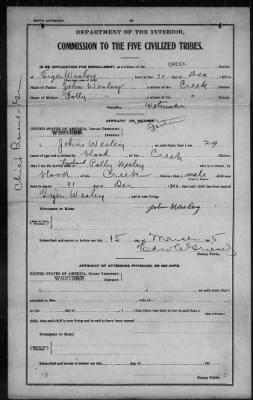 BIRTH AFFIDAVIT.
DEPARTMENT OF THE INTERIOR,
COMMISSION TO THE FIVE CIVILIZED TRIBES.
IN RE APPLICATION FOR ENROLLMENT, as a citizen of the CREEK Nation,
of Tiger Wesley, born on the 21 day of Dec, 190
Name of Father: John Wesley a citizen of the Creek Nation.
Name of Mother: Polly a citizen of the Nation.
Postoffice Wetumka
Father
AFFIDAVIT OF MOTHER.
UNITED STATES OF AMERICA, Indian Territory,
WESTERN District.
I, John Wesley, on oath state that I am 29
years of age and a citizen by blood, of the Creek Nation;
that I am the lawful of Polly Wesley, who is a citizen, by
blood of the Creek Nation; that a male child was
born to on 21 day of Dec, 190, that said child has been named
Tiger Wesley, and is now living.
John Wesley
WITNESSES TO MARK:
Subscribed and sworn to before me this 15 day of March, 1905
Edw C Griesel
Notary Public.
AFFIDAVIT OF ATTENDING PHYSICIAN, OR MID-WIFE.
UNITED STATES OF AMERICA, Indian Territory,
WESTERN District.
I, , a , on oath state that I
attended on Mrs. , wife of
on the day of , 190 ; that there was born to her on said date a
child; that said child is now living and is said to have been named
WITNESSES TO MARK:
Subscribed and sworn to before me this day of , 190
Notary Public.